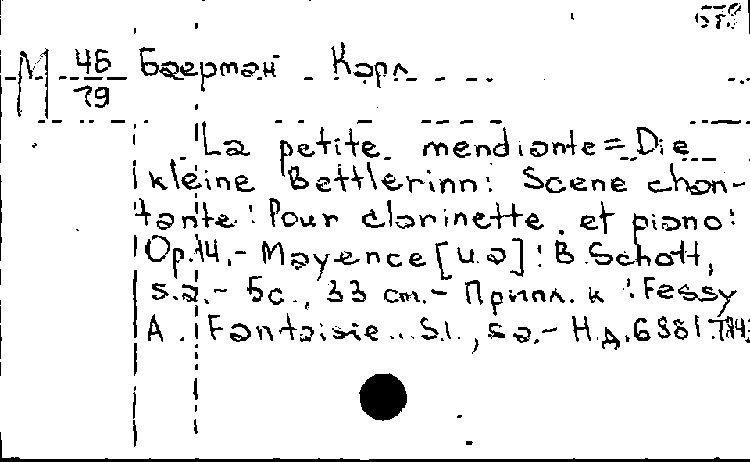 М 4Б/79 Баерман Карл
La petite mendiante = Die
kleine Bettlerinn: Scene chan-
tante: Pour clarinette et piano:
Op.14.- Mayence [u.a]: B. Schott,
s.a.- 5c., 33 cm.- Припл. к: Fessy
A. Fantaisie... S.l., s.a.- Н.д.6881.